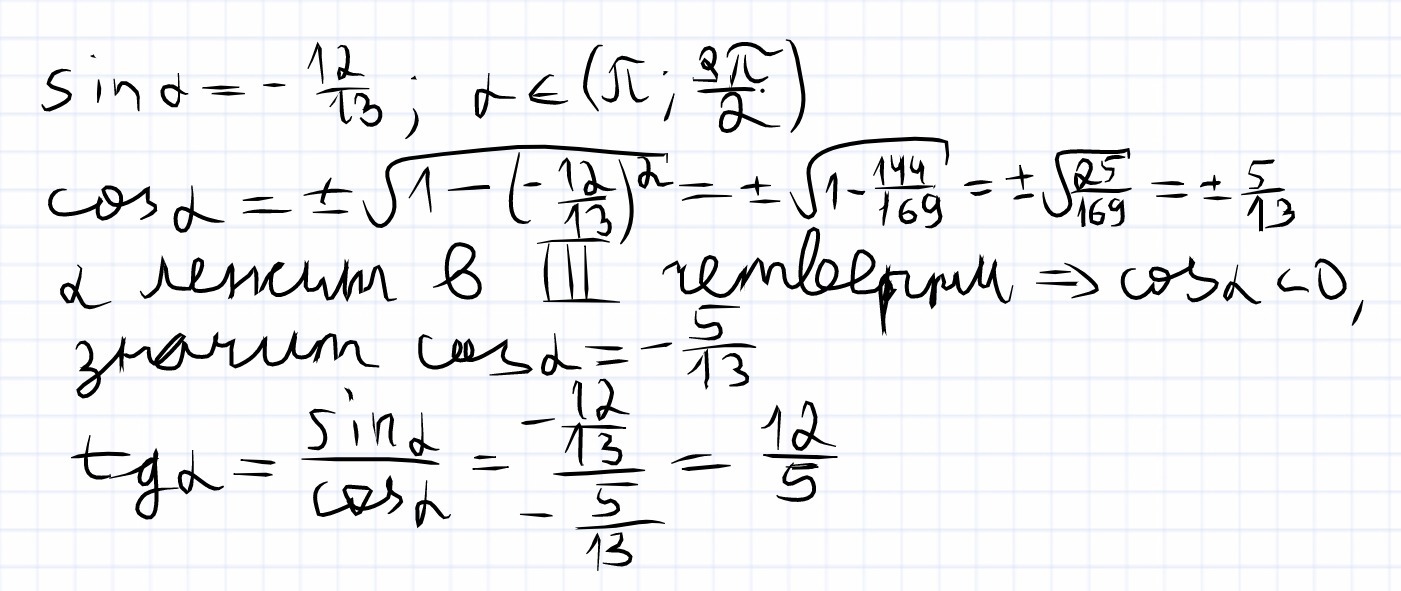 sin α = - 12/13 ; α ∈ (π ; 3π/2)
cos α = ± √(1 - (-12/13)²) = ± √(1 - 144/169) = ± √(25/169) = ± 5/13
α лежит в III четверти ⇒ cos α < 0,
значит cos α = - 5/13
tg α = sin α / cos α = (- 12/13) / (- 5/13) = 12/5